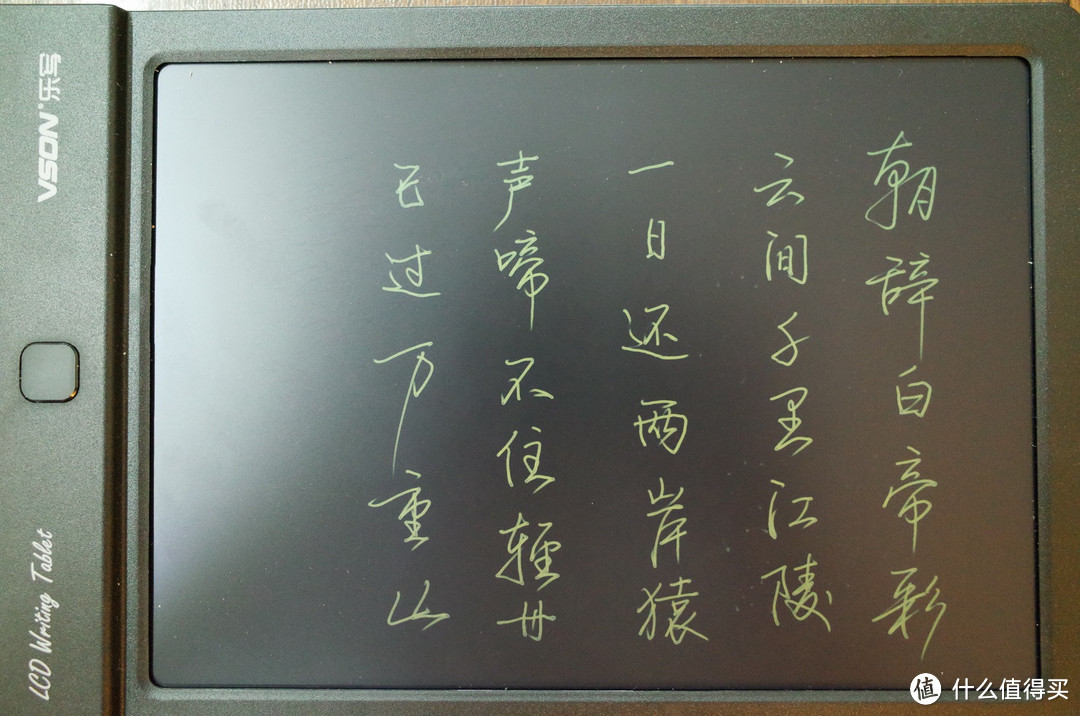 朝辞白帝彩
云间千里江陵
一日还两岸猿
声啼不住轻舟
已过万重山
VSON 乐写
LCD Writing Tablet
值 什么值得买